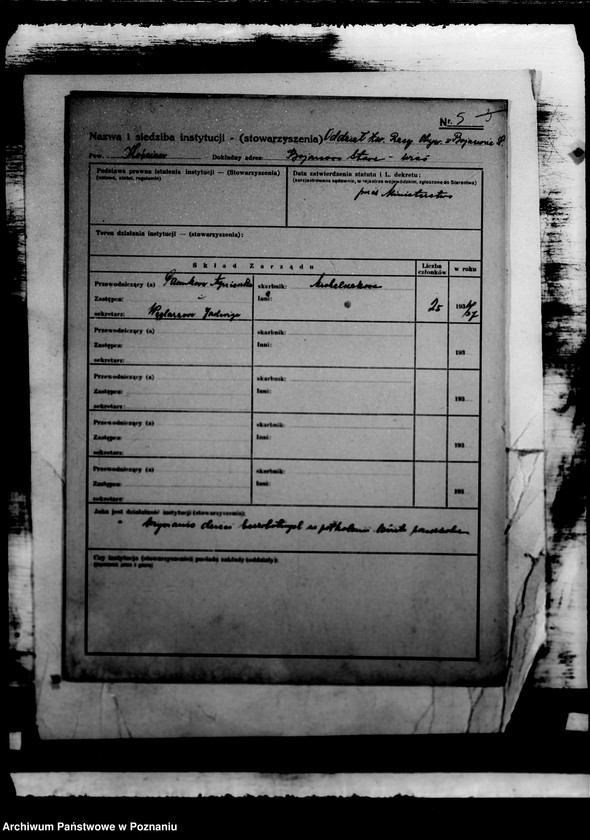 Nr. 5
Nazwa i siedziba instytucji - (stowarzyszenia) Oddział Zw. Pracy Obyw. w Bojanowie S.
Pow. Dokładny adres: Bojanowo Stare - wieś
Podstawa prawna istnienia instytucji — (Stowarzyszenia)
(ustawa, statut, regulamin)
Data zatwierdzenia statutu i L. dekretu:
(zarejestrowane sądownie, w rejestrze wojewódzkim, zgłoszone do Starostwa)
przez Ministerstwo
Teren działania instytucji — (stowarzyszenia):
Skład Zarządu
Liczba członków
w roku
Przewodniczący (a) skarbnik:
Zastępca: Inni: 25 1936/37
sekretarz: Jadwiga
Przewodniczący (a) skarbnik:
Zastępca: Inni: 193
sekretarz:
Przewodniczący (a) skarbnik:
Zastępca: Inni: 193
sekretarz:
Przewodniczący (a) skarbnik:
Zastępca: Inni: 193
sekretarz:
Przewodniczący (a) skarbnik:
Zastępca: Inni: 193
sekretarz:
Jaka jest działalność instytucji (stowarzyszenia):
dzieci bezrobotnych
Czy instytucja (stowarzyszenie) posiada zakłady (oddziały):
Archiwum Państwowe w Poznaniu